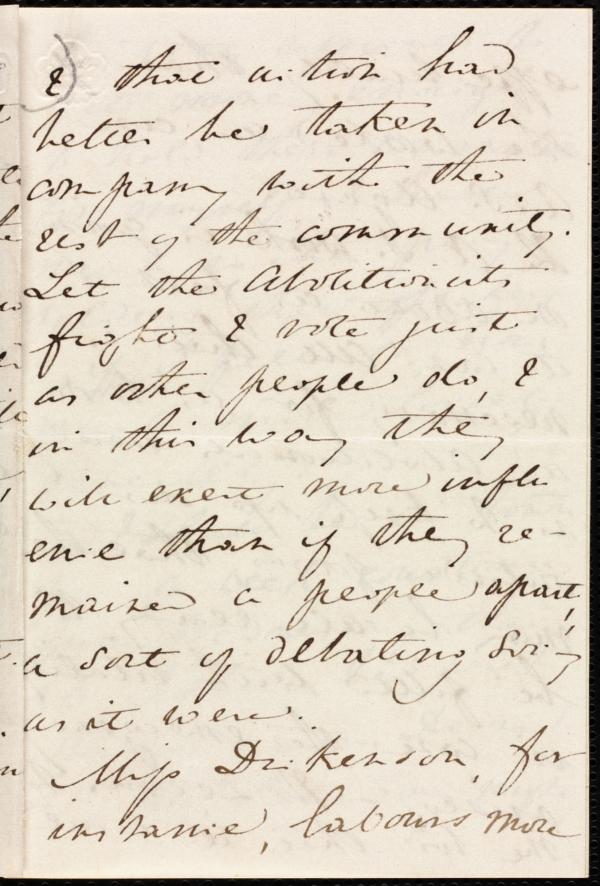 & that action had
better be taken in
company with the
rest of the community.
Let the Abolitionists
fight & vote just
as other people do, &
in this way they
will exert more influ
ence than if they re-
mained a people apart,
a sort of debating Soc:y
as it were.
Miss Dickenson, for
instance, labours more